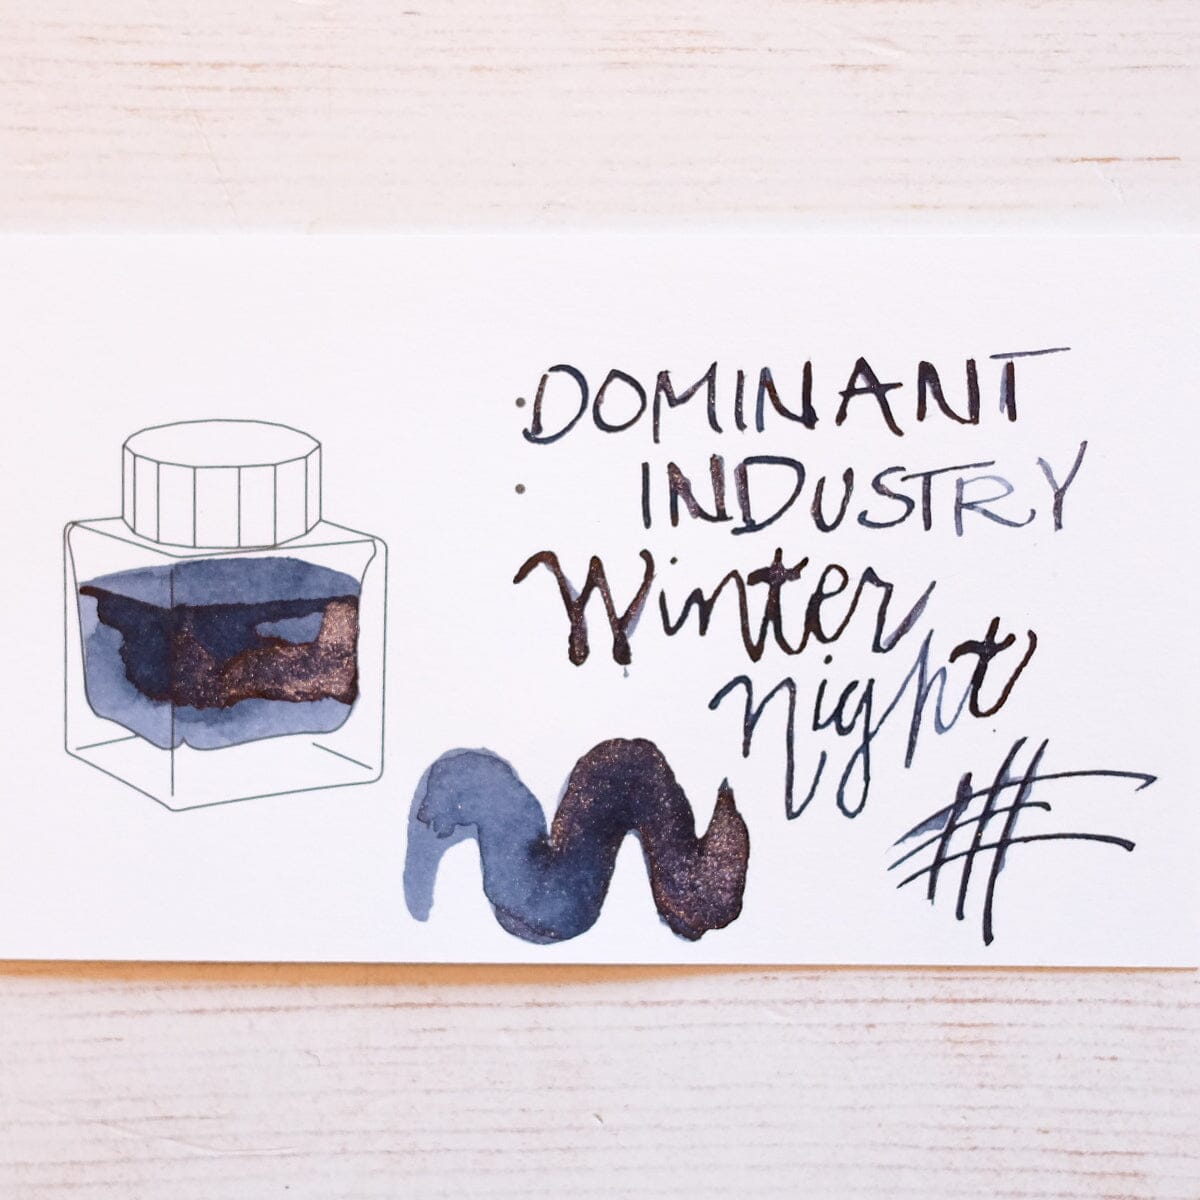 DOMINANT
INDUSTRY
Winter
night